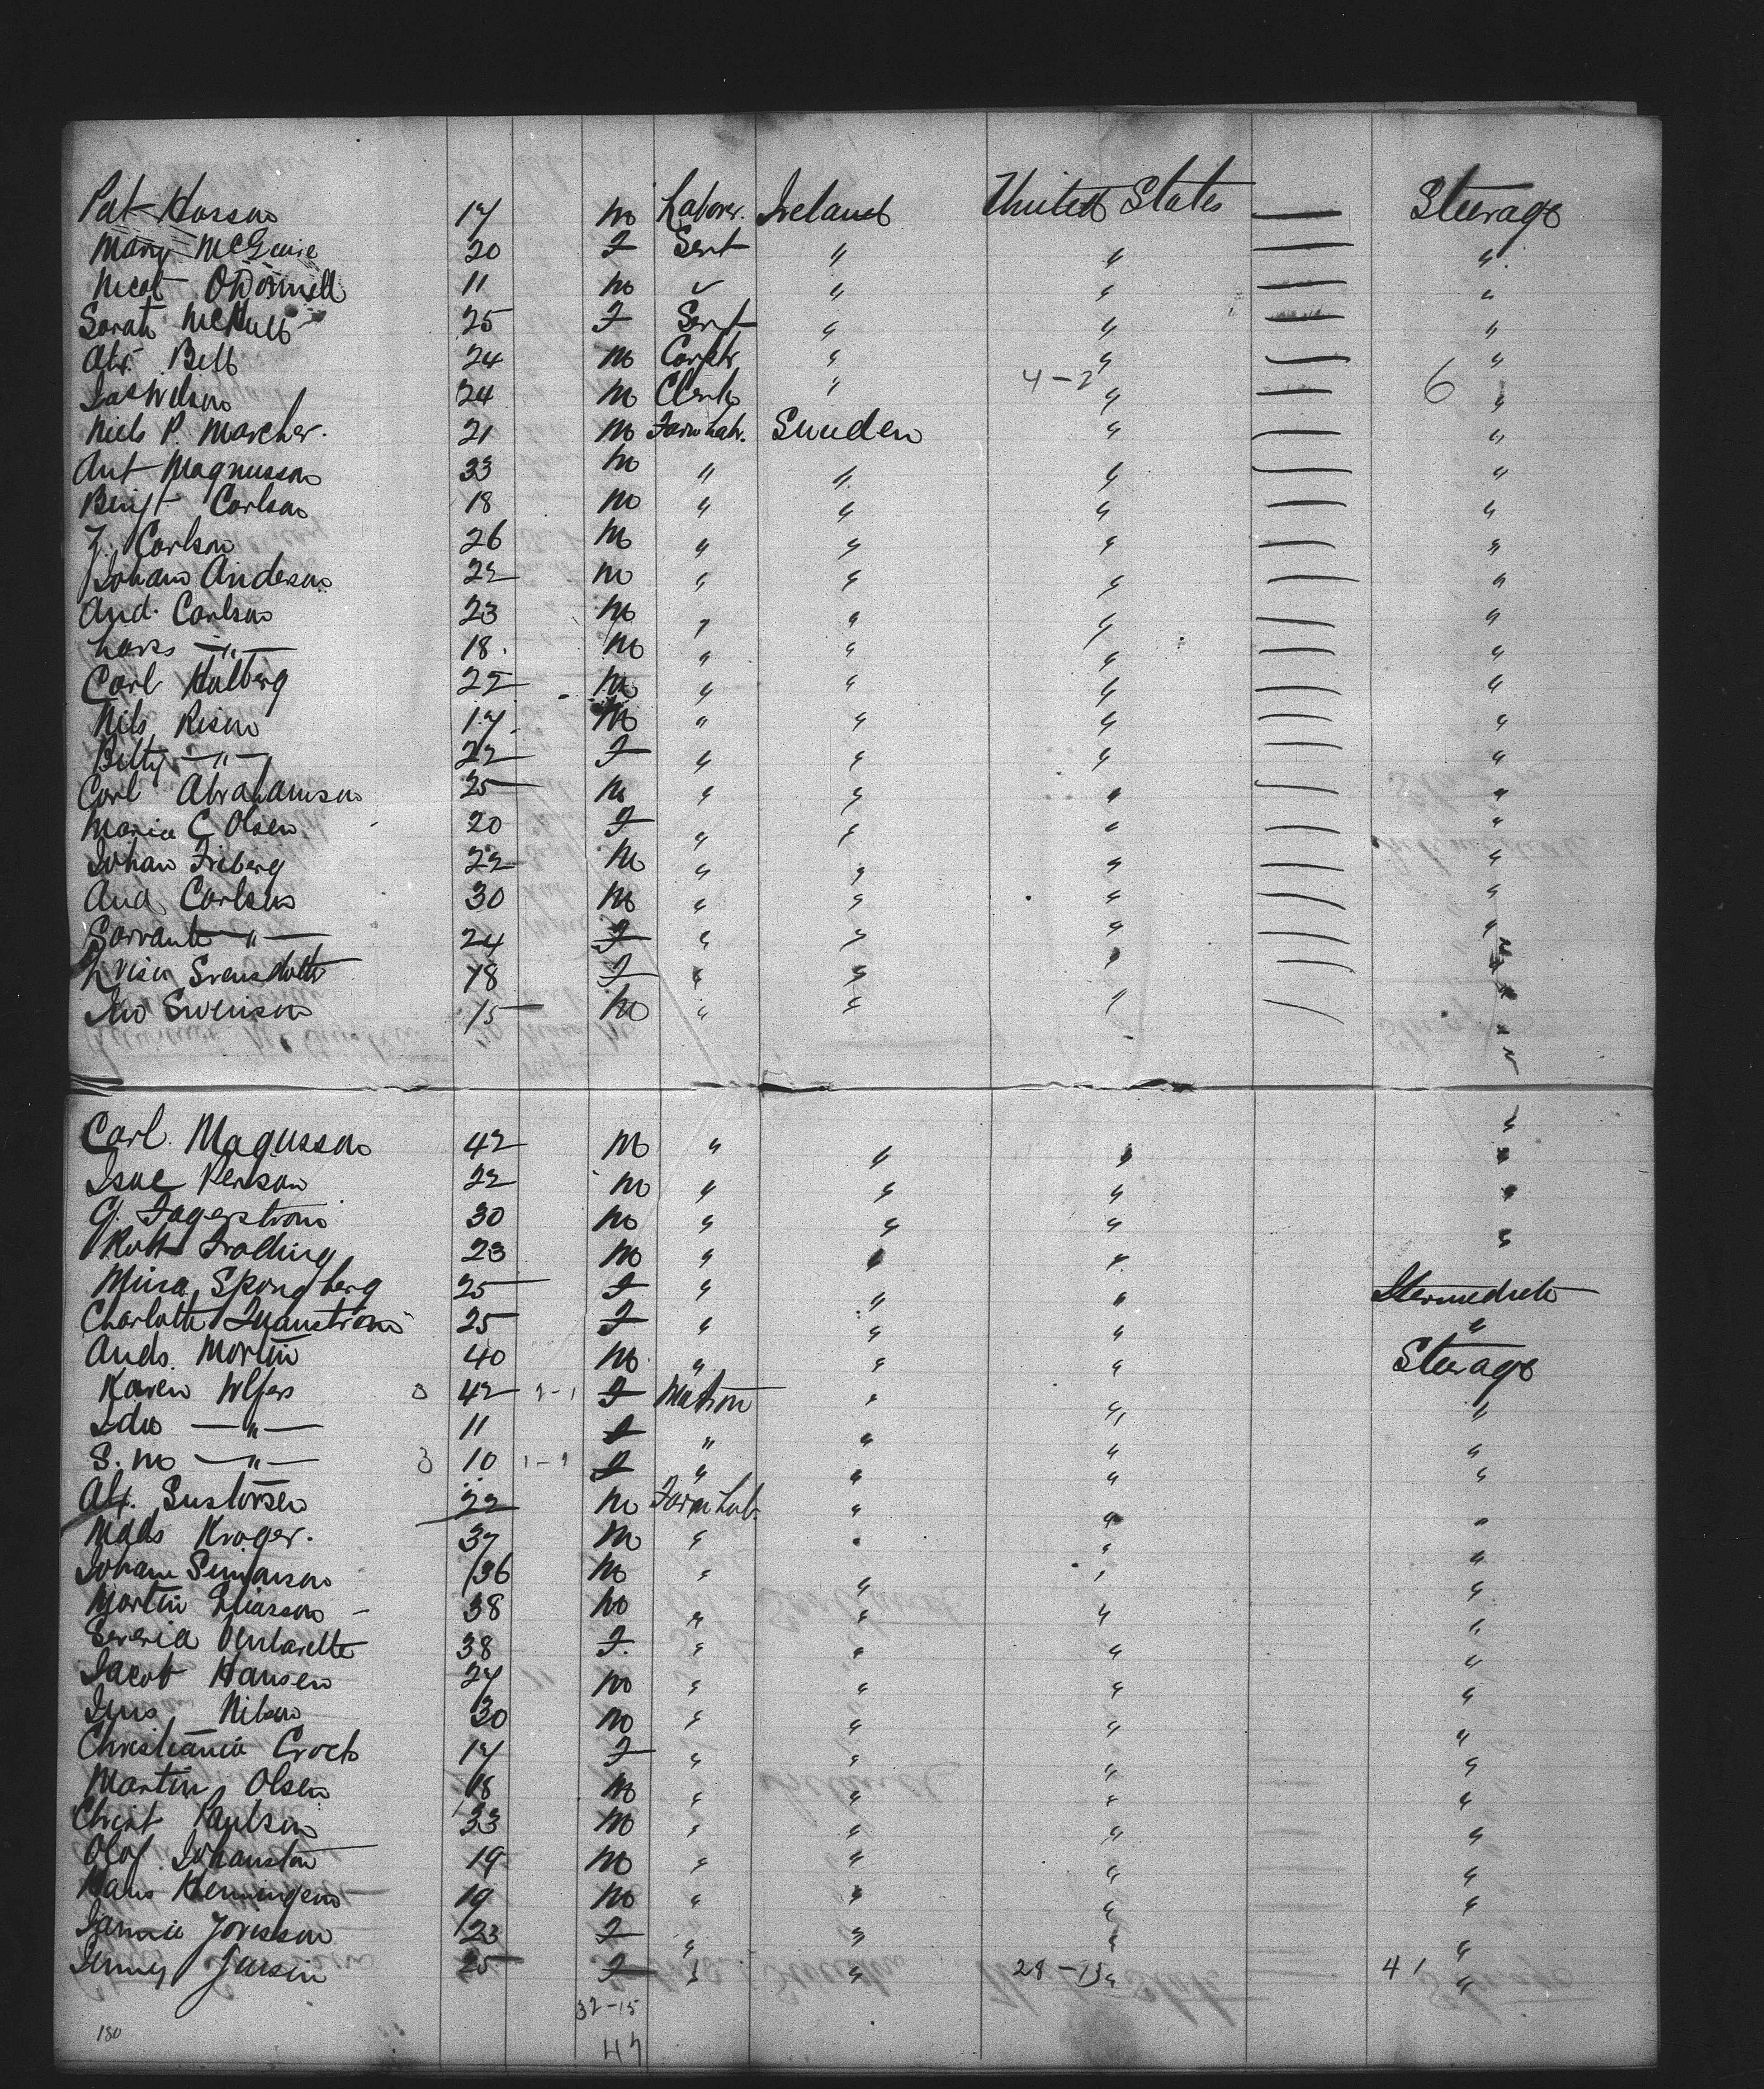 Pat Hassan 17 m Labour. Ireland United States — Steerage
Mary McGuire 20 F Sert " " — "
Neal O'Donnell 11 m " " " — "
Sarah McHull 25 F Sert " " — "
Alr. Bell 24 m Carptr. " " — "
Jas Wilson 24 m Clerk " 4-2 " — 6 "
Niels P. Marcher. 21 m Farm Labr. Sweden " — "
Ant Magnusson 33 m " " " — "
Bengt Carlson 18 m " " " — "
J. Carlson 26 m " " " — "
Johan Anderson 22 m " " " — "
And. Carlson 23 m " " " — "
Lars —"— 18. m " " " — "
Carl Hulberg 22 m " " " — "
Nils Rison 17 m " " " — "
Betty —"— 22 F " " " — "
Carl Abrahamson 25 m " " " — "
Maria C Olsen 20 F " " " — "
Johan Friberg 22 m " " " — "
And Carlson 30 m " " " — "
—"— 24 F " " " — "
Svensdotter 18 F " " " — "
Jno Swenson 15 m " " " — "
Carl. Magusson 42 m " " " "
Isac Person 22 m " " " "
G. Fagerstrom 30 m " " " "
23 m " " " "
Mina Spongberg 25 F " " " Itermediate
Charlotte Quanstrom 25 F " " " "
Ands. Mortin 40 m " " " Steerage
Karen Wlfers 42 F Matron " " "
Ida —"— 11 F " " " "
S. m —"— 10 F " " " "
Alf. Sustorsen 22 m Farm Lab. " " "
Mads Kroger. 37 m " " " "
Johan 36 m " " " "
Martin Eliasson 38 m " " " "
38 F. " " " "
Jacob Hansen 27 m " " " "
Jens Nilson 30 m " " " "
Christiania 17 F " " " "
Martin Olsen 18 m " " " "
Christ Paulson 33 m " " " "
Olof Johanston 19 m " " " "
Hans Henningsen 19 m " " " "
23 F " " " "
Jenny Jensin 25 F " " 28-13 " 41 "
32-15
180 47